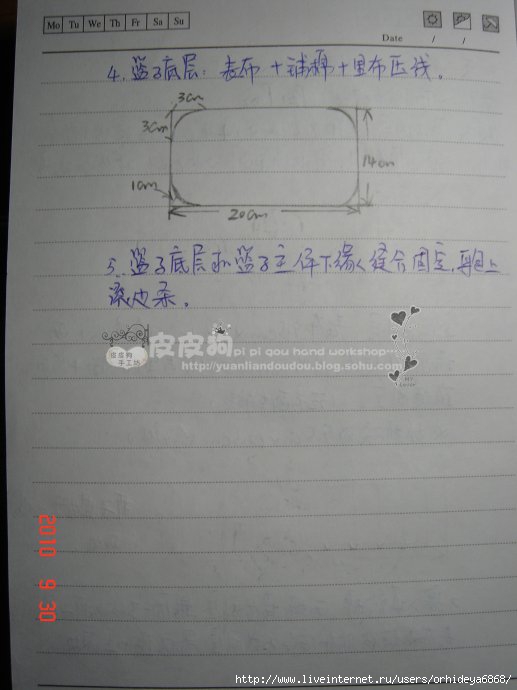 Mo Tu We Th Fr Sa Su
Date / /
4. 篮子底层: 表布+铺棉+里布压线。
3cm
3cm
14cm
1cm
20cm
5. 篮子底层和篮子主体下缘缝合固定,再包上
滚边条。
皮皮狗
手工坊
皮皮狗 pi pi gou hand workshop
http://yuanliandoudou.blog.sohu.com
MY
2010 9 30
http://www.liveinternet.ru/users/orhideya6868/